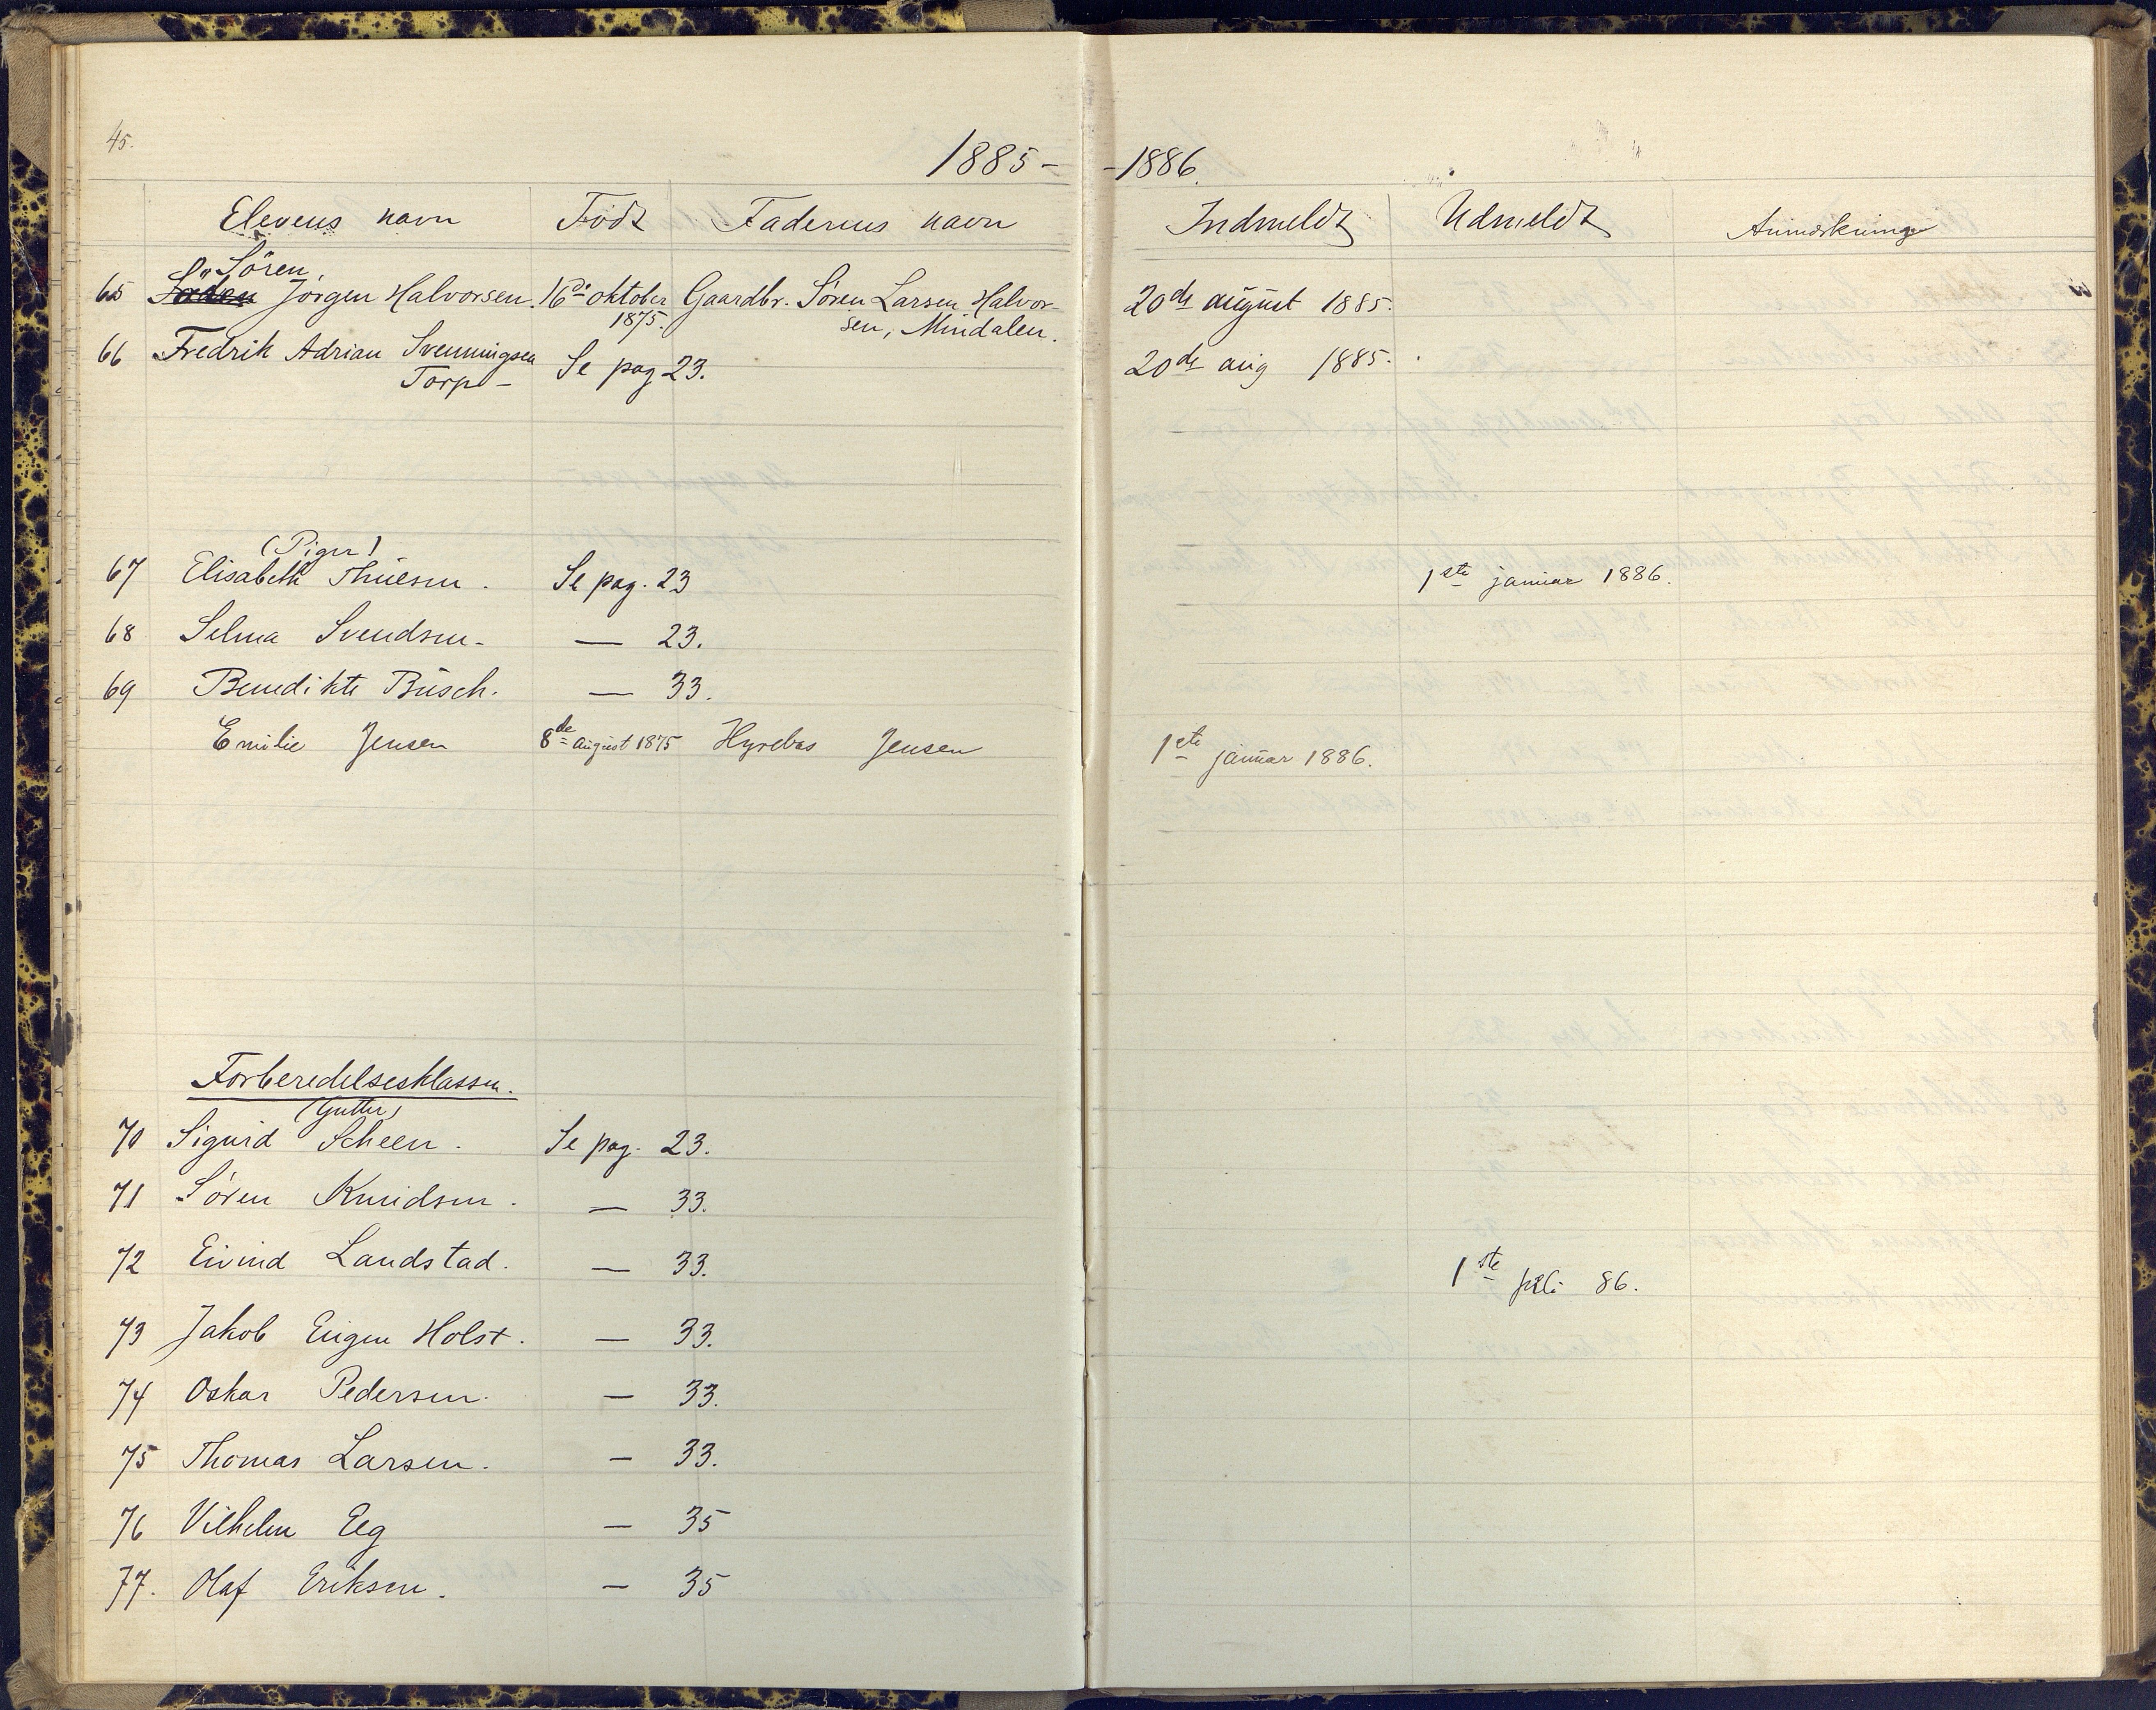 45.
1885- -1886.
Elevens navn Född Faderens navn Indmeldt Udmeldt Anmærkning
Sören
65 Jörgen Halvorsen. 16de oktober Gaardbr. Sören Larsen Halvor- 20de august 1885.
1875. sen, Mindalen.
66 Fredrik Adrian Svenningsen Se pag 23. 20de aug 1885.
Torp -
(Piger)
67 Elisabeth Thuesen. Se pag. 23 1ste januar 1886.
68 Selma Svendsen - — 23.
69 Benedikte Büsch. — 33.
Emilie Jensen 8de august 1875 Jensen 1ste januar 1886.
Forberedelsesklassen.
(Gutter)
70 Sigurd Scheen. Se pag. 23.
71 Sören Knudsen. — 33.
72 Eivind Landstad. — 33. 1ste juli 86.
73 Jakob Eugen Holst. — 33.
74 Oskar Pedersen. — 33.
75 Thomas Larsen. — 33.
76 Vilhelm Eeg — 35
77. Olaf Eriksen. — 35